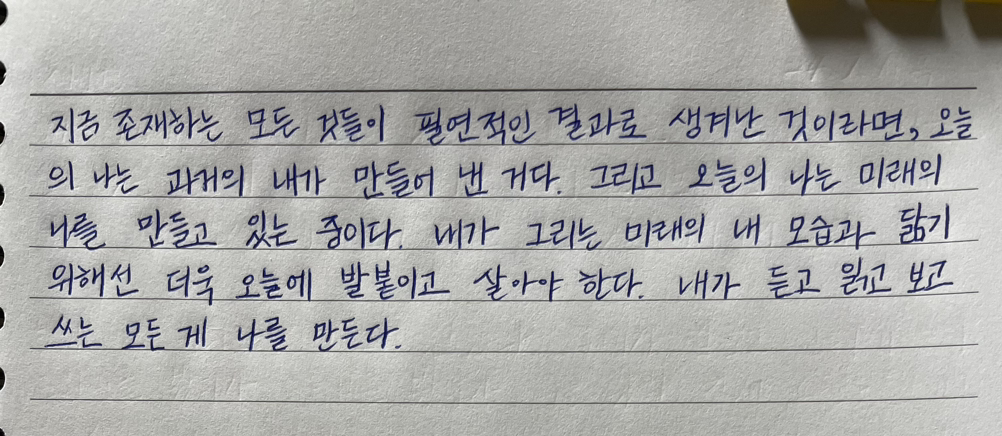 지금 존재하는 모든 것들이 필연적인 결과로 생겨난 것이라면, 오늘
의 나는 과거의 내가 만들어 낸 거다. 그리고 오늘의 나는 미래의
나를 만들고 있는 중이다. 내가 그리는 미래의 내 모습과 닮기
위해선 더욱 오늘에 발붙이고 살아야 한다. 내가 듣고 읽고 보고
쓰는 모든 게 나를 만든다.